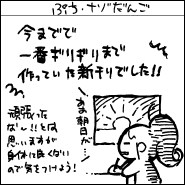 ぷち・ナゾだんご
今までで
一番ギリギリまで
作っていた新ギリでした!!
あ朝日が…
頑張った
なー!!とは
思いますが
身体に良くない
ので気をつけよう!